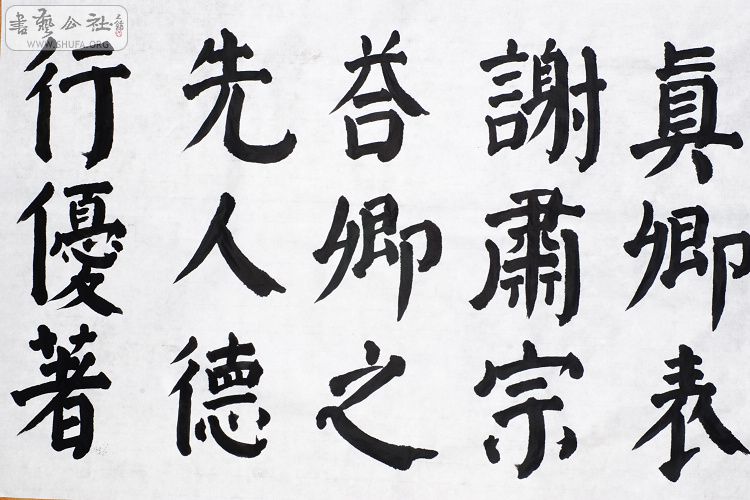 真卿表
謝肅宗
荅卿之
先人德
行優著
書藝公社
WWW.SHUFA.ORG